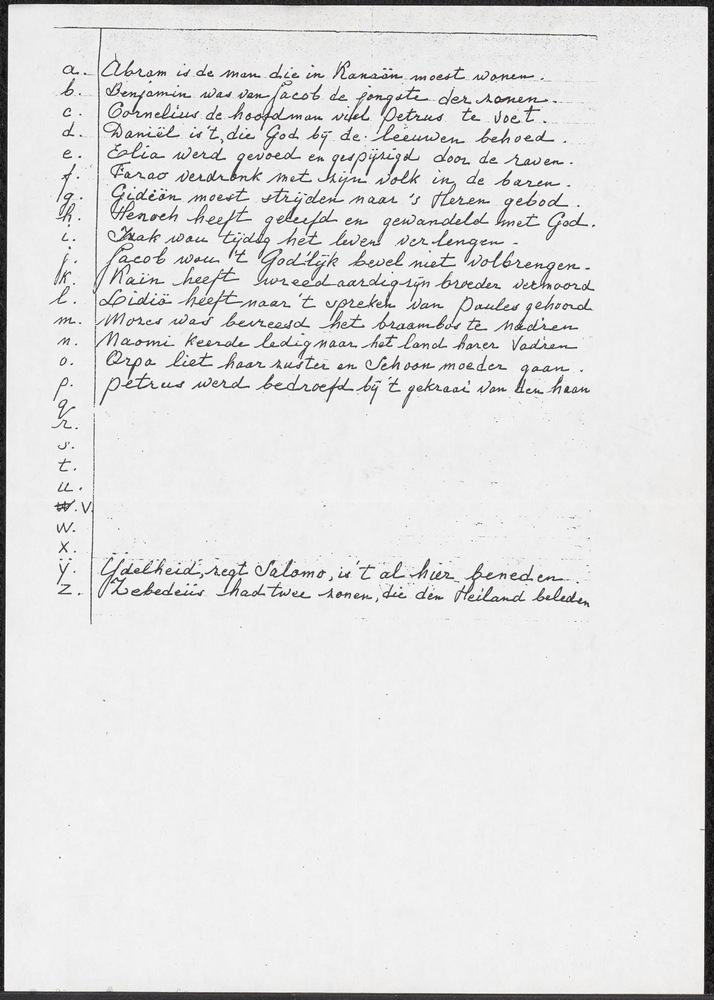 a. Abram is de man die in Kanaän moest wonen.
b. Benjamin was van Jacob de jongste der zonen.
c. Cornelius de hoofdman viel Petrus te voet.
d. Daniël is't, die God bij de leeuwen behoed.
e. Elia werd gevoed en gespijzigd door de raven.
f. Farao verdronk met zijn volk in de baren.
g. Gideön moest strijden naar 's Heren gebod.
h. Henoch heeft geleefd en gewandeld met God.
i. Izak wou tijdig het leven verlengen.
j. Jacob wou 't God'lijk bevel niet volbrengen.
k. Kaïn heeft wreedaardig zijn broeder vermoord
l. Lidiä heeft naar 't spreken van Paules gehoord
m. Mozes was bevreesd het braambos te nad'ren
n. Naomi keerde ledig naar het land harer Vad'ren
o. Orpa liet haar zuster en Schoon moeder gaan.
p. Petrus werd bedroefd bij 't gekraai van den haan
q
r.
s.
t.
u.
w. V.
w.
x.
y. Ydelheid, zegt Salomo, is 't al hier beneden.
z. Zebedeüs had twee zonen, die den Heiland beleden